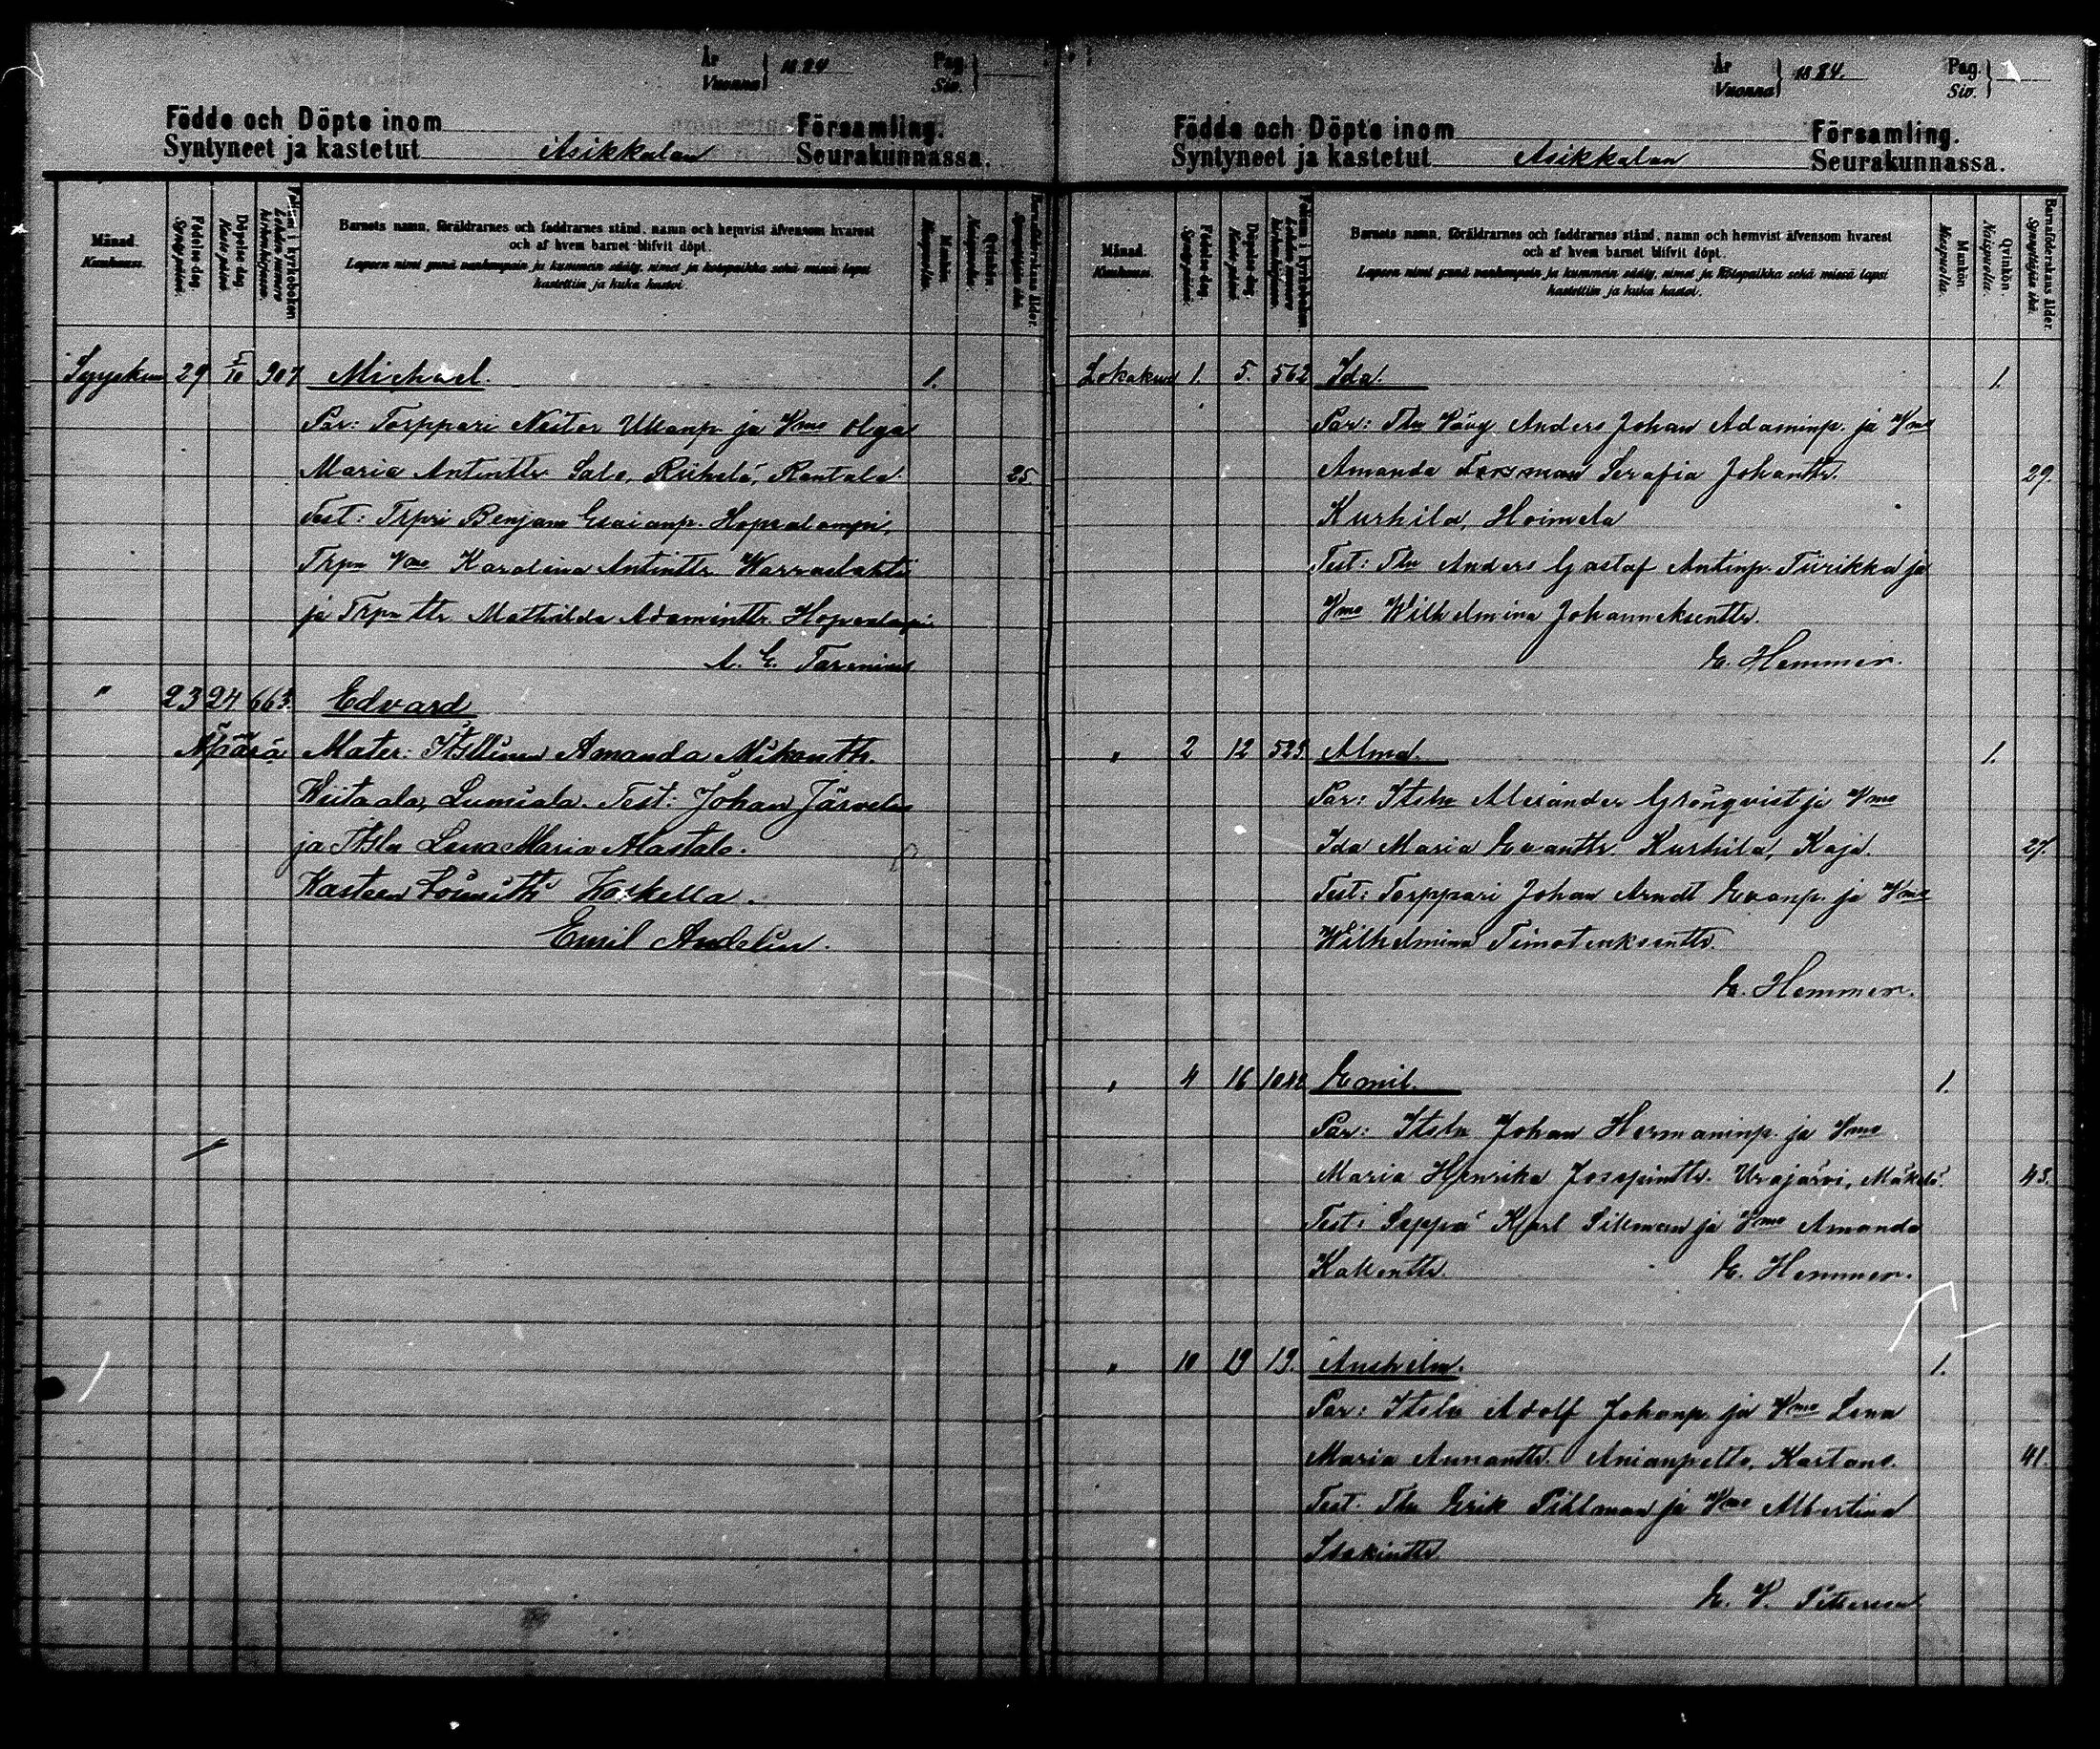 År
Vuonna } 1884
Pag.
Siv. }
Födde och Döpte inom Församling.
Syntyneet ja kastetut Asikkalan Seurakunnassa.
Månad. Kuukausi.
Födelse-dag. Synty-päivä.
Döpelse-dag. Kaste-päivä.
Folium i kyrkoboken. Lehden numero kirkonkirjassa.
Barnets namn, föräldrarnes och faddrarnes stånd, namn och hemvist äfvensom hvarest
och af hvem barnet blifvit döpt.
Lapsen nimi ynnä vanhempain ja kummein sääty, nimet ja kotopaikka sekä missä lapsi
kastettiin ja kuka kastoi.
Mankön. Miespuolia.
Qvinkön. Naispuolia.
Barnaföderskans ålder. Synnyttäjän ikä.
Syyskuu 29 5/10 907 Michael. 1.
Par: Torppari Nestor Ukanp. ja Vmo Olga
Maria Antinttr Salo, Riihelä, Rantala 25
Test: Trpri Benjam Esaianp. Hopealampi,
Trpn Vmo Karolina Antinttr Warraslahti
ja Trpn ttr Mathilda Adaminttr. Hopealampi
A. E. Tarenius
" 23 24 663. Edvard
Äpärä Mater: Itsllinen Amanda Mikonttr.
Wiitaala, Lumiala. Test: Johan Järvelä
ja Itsln Lena Maria Alastalo.
Kasteen toimitti Koskella.
Emil Andelin.
År
Vuonna } 1884.
Pag.
Siv. }
Födde och Döpte inom Församling.
Syntyneet ja kastetut Asikkalan Seurakunnassa.
Månad. Kuukausi.
Födelse-dag. Synty-päivä.
Döpelse-dag. Kaste-päivä.
Folium i kyrkoboken. Lehden numero kirkonkirjassa.
Barnets namn, föräldrarnes och faddrarnes stånd, namn och hemvist äfvensom hvarest
och af hvem barnet blifvit döpt.
Lapsen nimi ynnä vanhempain ja kummein sääty, nimet ja kotopaikka sekä missä lapsi
kastettiin ja kuka kastoi.
Mankön. Miespuolia.
Qvinkön. Naispuolia.
Barnaföderskans ålder. Synnyttäjän ikä.
Lokakuu 1. 5. 562 Ida. 1.
Par: Tln Vävy Anders Johan Adaminp. ja Vmo
Amanda Forsman Serafia Johanttr. 29.
Kurhila, Hoimela
Test: Tln Anders Gustaf Antinp. Tiirikka ja
Vmo Wilhelmina Johanneksenttr.
E. Hemmer.
" 2 12 525 Alma. 1.
Par: Itsln Alexander Grönqvist ja Vmo
Ida Maria Evanttr. Kurhila, Kaja. 27.
Test: Torppari Johan Arndt Evanp. ja Vmo
Wilhelmina Timoteuksenttr.
E. Hemmer.
" 4 16 Emil. 1.
Par: Itsln Johan Hermaninp. ja Vmo
Maria Henrika Josepinttr. Urajärvi, Mäkelä. 43.
Test: Seppä Karl Silman ja Vmo Amanda
Kallenttr. E. Hemmer.
" 10 19 19. Anshelm. 1.
Par: Itsln Adolf Johanp. ja Vmo Lena
Maria Annanttr. Anianpelto, Kartano. 41.
Test. Tln Erik Pihlman ja Vmo Albertina
Isakinttr
E. V. Petterson